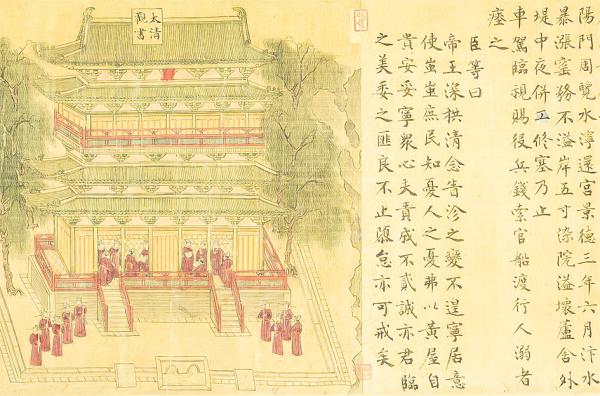 陽門周覽水濘還宮景德三年六月汴水
暴漲窰務不溢岸五寸染院溢壞蘆舍外
堤中夜併工修塞乃止
車駕臨視賜役兵錢索官船渡行人溺者
瘞之
臣等曰
帝王深拱清念眚沴之變不遑寧居意
使蚩蚩庶民知憂人之憂弗以黃屋自
貴安妥寧眾心夫責成不貳誠亦君臨
之美委之匪良不止隳怠亦可戒矣
太清
觀書